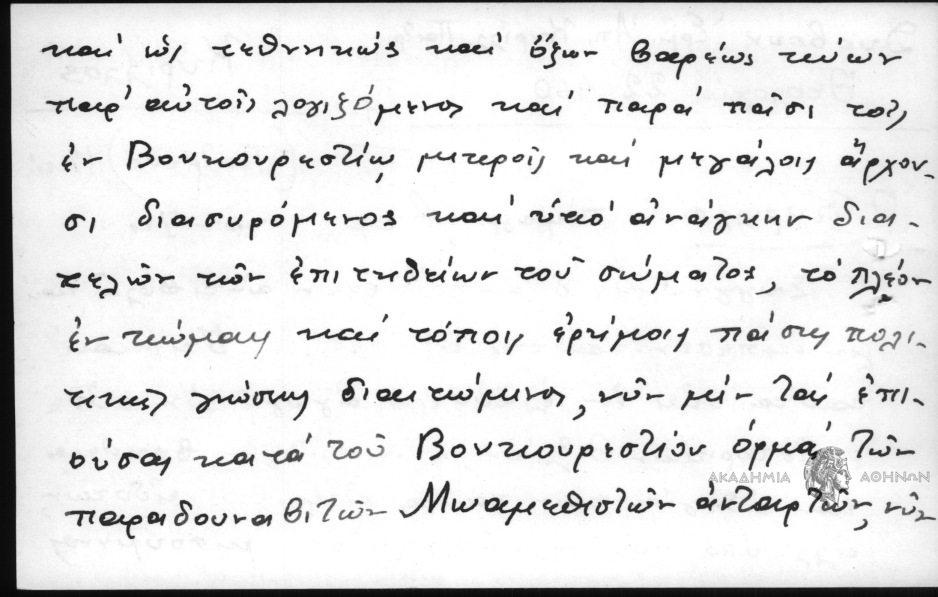 καὶ ὡς τεθνηκὼς καὶ ὄζων βαρέως κύων
παρ' αὐτοῖς λογιζόμενος καὶ παρὰ πᾶσι τοῖς
ἐν Βουκουρεστίῳ μικροῖς καὶ μεγάλοις ἄρχου-
σι διασυρόμενος καὶ ὑπὸ ἀνάγκην δια-
τελῶν τῶν ἐπιτηδείων τοῦ σώματος, τὸ πλέον
ἐν κώμαις καὶ τόποις ἐρήμοις πάσης πολι-
τικῆς γνώσεως διαιτώμενος, νῦν μὲν τὰς ἐπι-
ούσας κατὰ τοῦ Βουκουρεστίου ὁρμὰς τῶν
παραδουναβιτῶν Μωαμεθιστῶν ἀνταρτῶν, νῦν
ΑΚΑΔΗΜΙΑ ΑΘΗΝΩΝ